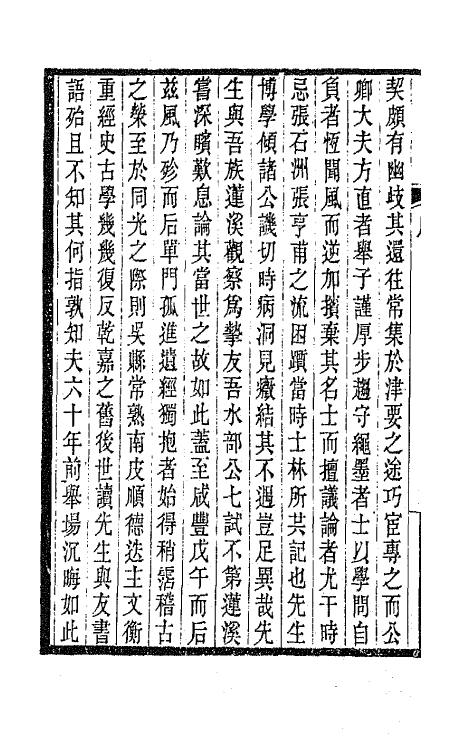 契頗有幽歧其還往常集於津要之途巧宦專之而公
卿大夫方直者舉子謹厚步趨守繩墨者士以學問自
負者恆聞風而逆加擯棄其名士而擅議論者尤干時
忌張石洲張亨甫之流困躓當時士林所共記也先生
博學傾諸公譏切時病洞見癥結其不遇豈足異哉先
生與吾族蓮溪觀察爲摯友吾水部公七試不第蓮溪
嘗深矉歎息論其當世之故如此蓋至咸豐戊午而后
兹風乃殄而后單門孤進遺經獨抱者始得稍霑稽古
之榮至於同光之際則吳縣常熟南皮順德迭主文衡
重經史古學幾幾復反乾嘉之舊後世讀先生與友書
語殆且不知其何指孰知夫六十年前舉場沉晦如此